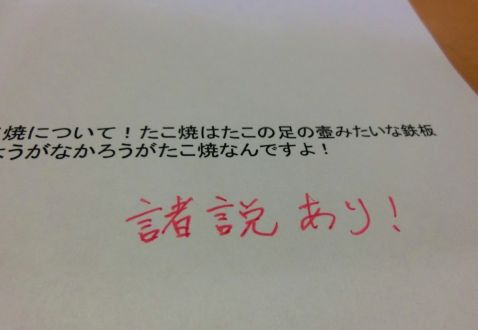 焼について！たこ焼はたこの足の壺みたいな鉄板
ようがなかろうがたこ焼なんですよ！
諸説あり！